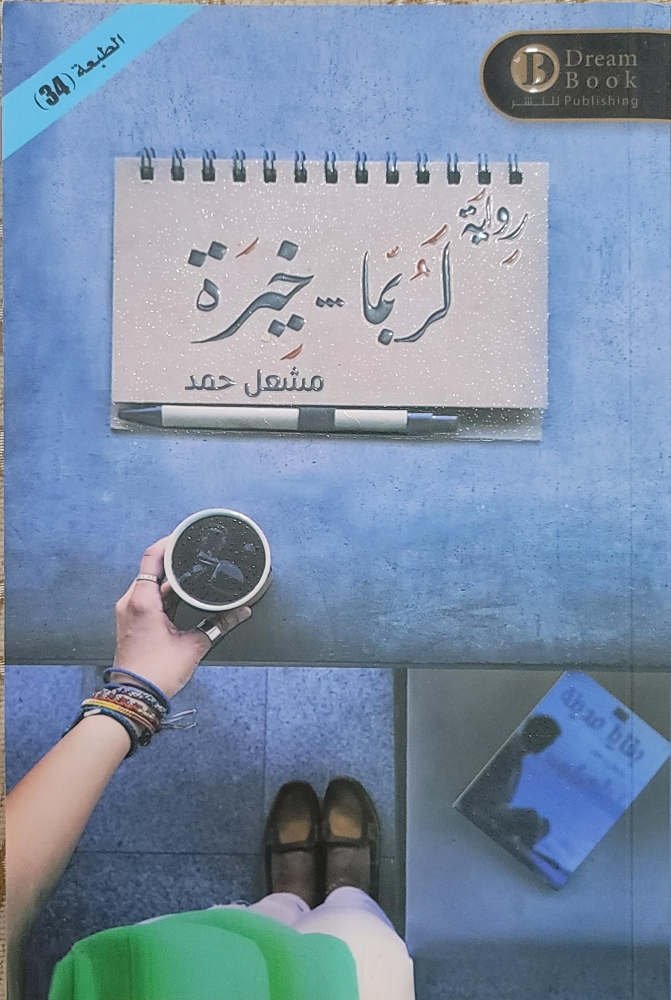 الطبعة (34)
Dream
Book
Publishing للنشر
رواية
لَرُبَّما ... خِيرَة
مشعل حمد